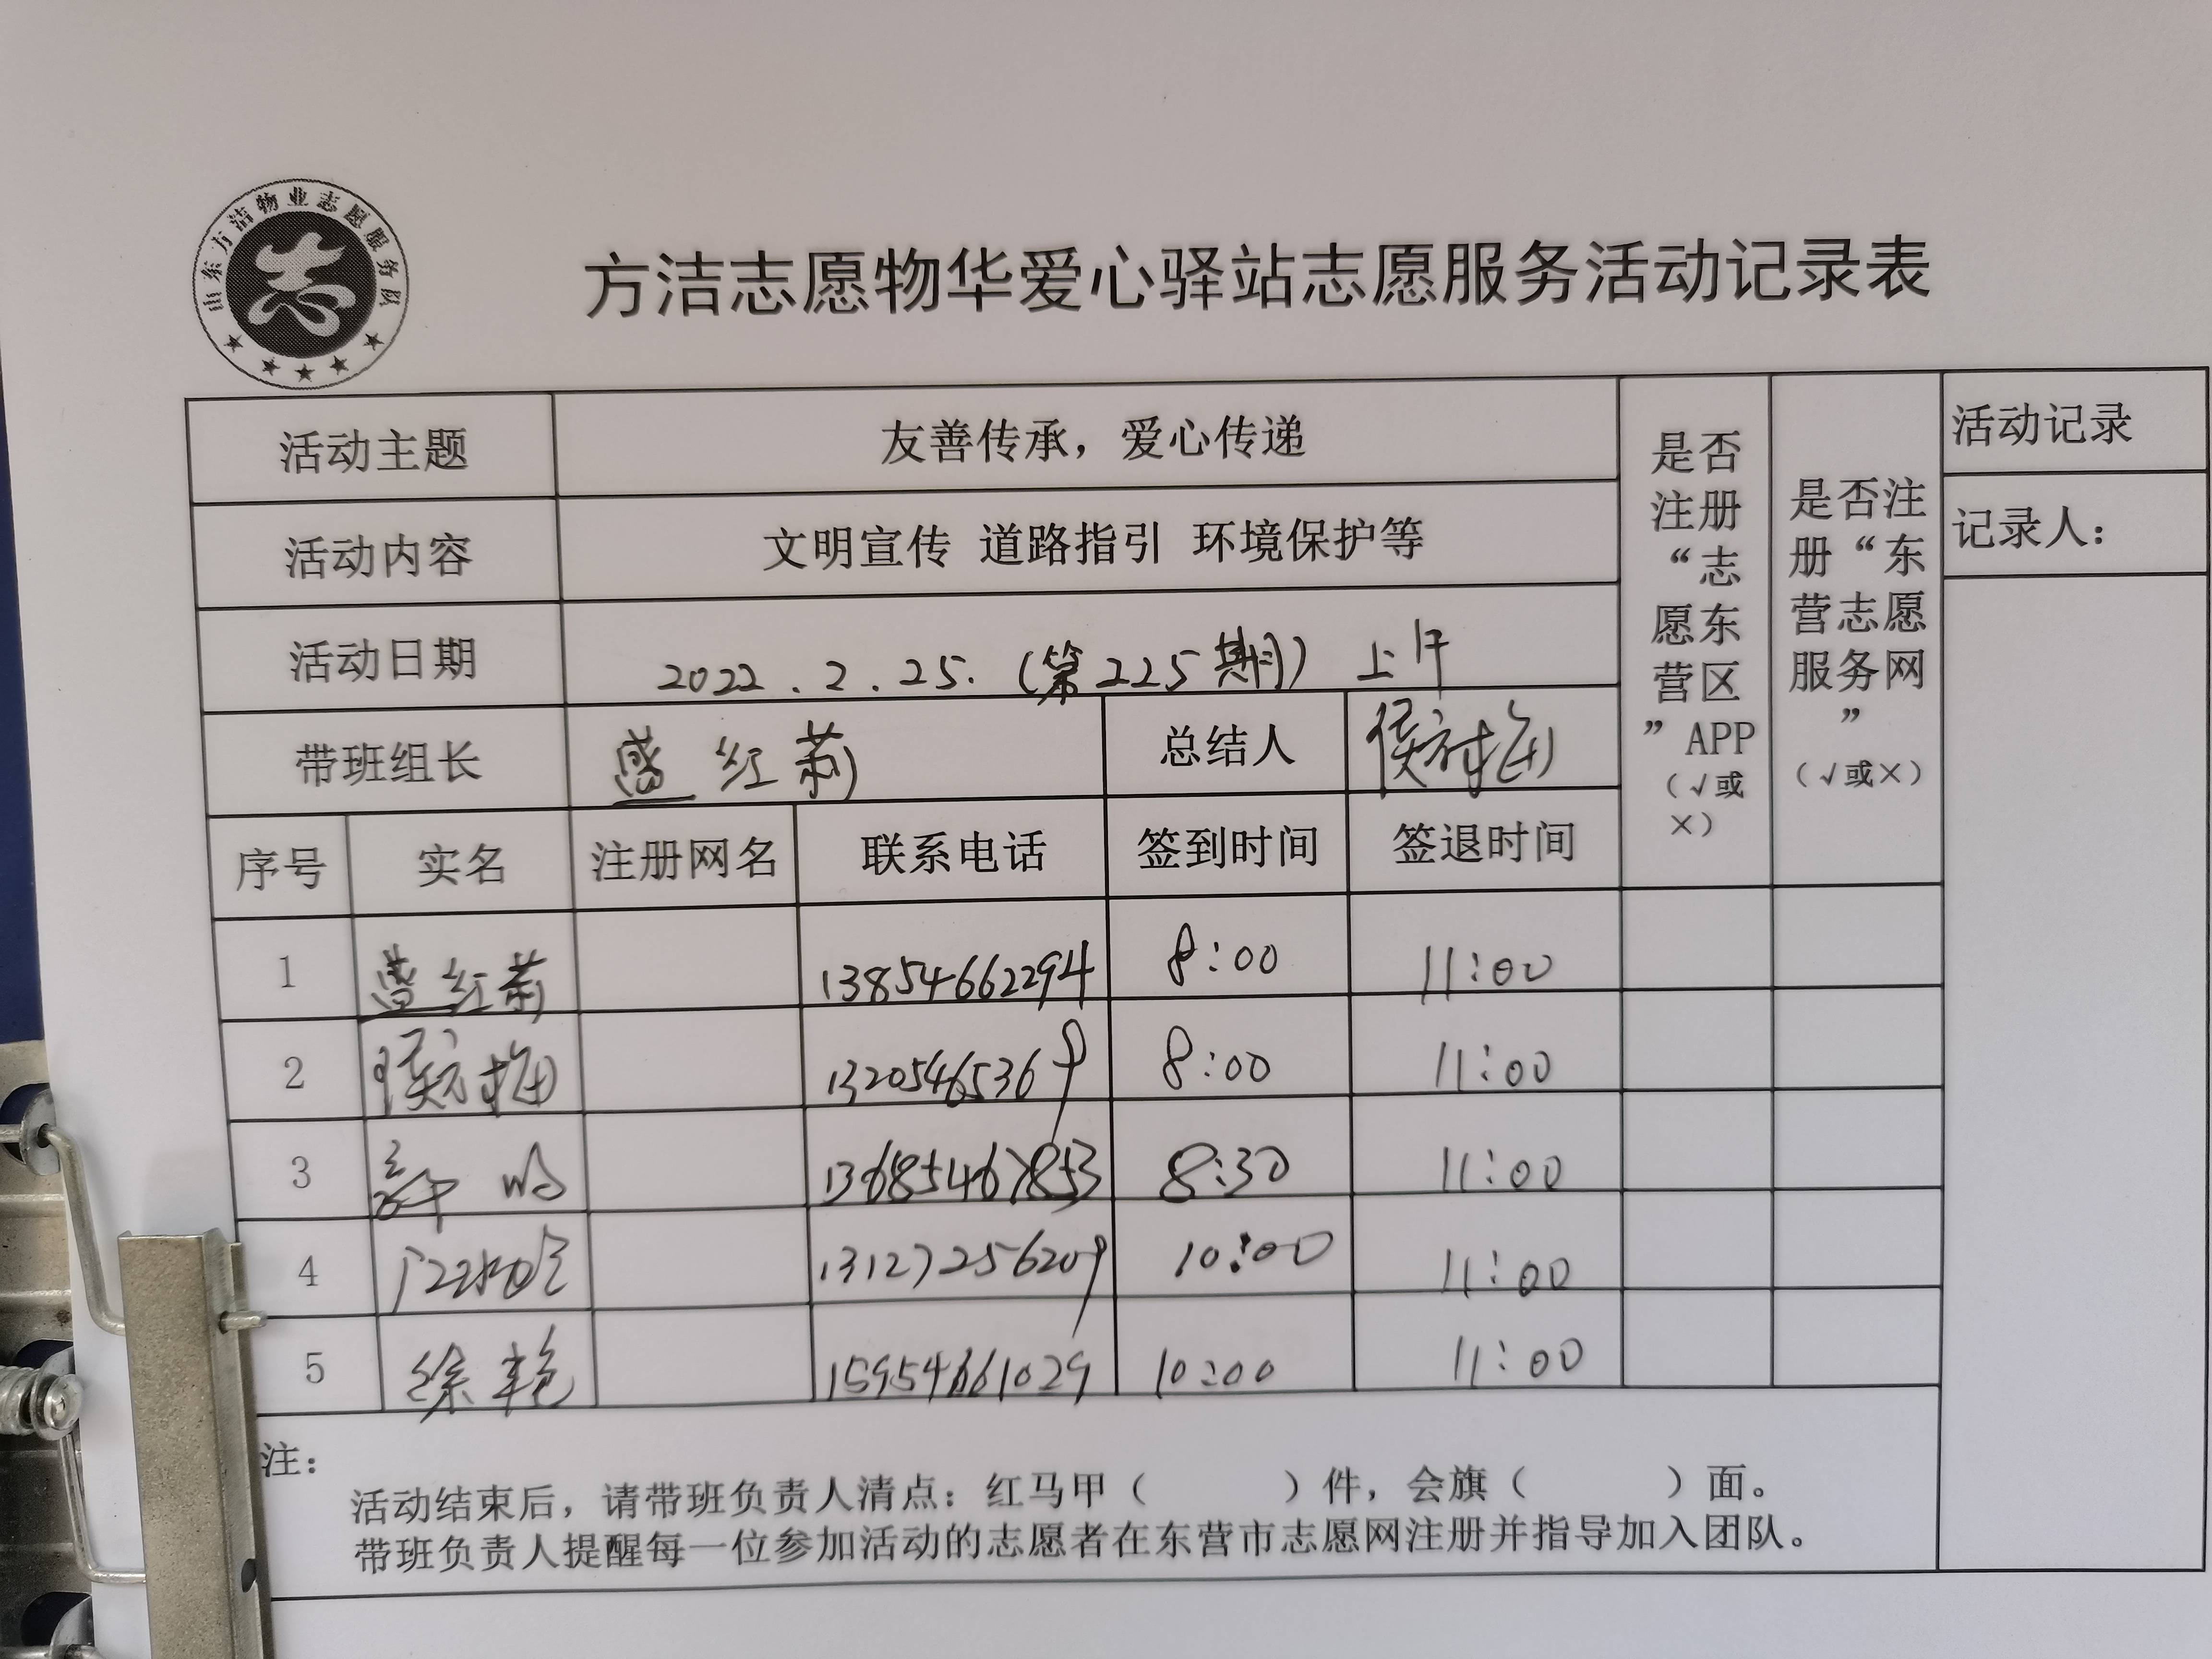 山东方洁物业志愿服务队
志
方洁志愿物华爱心驿站志愿服务活动记录表
活动主题 友善传承，爱心传递
活动内容 文明宣传 道路指引 环境保护等
活动日期 2022.2.25.（第225期）上午
带班组长 盛红莉 总结人
序号 实名 注册网名 联系电话 签到时间 签退时间
是否
注册
“志
愿东
营区
”APP
（√或
×）
是否注
册“东
营志愿
服务网
”
（√或×）
活动记录
记录人：
1 盛红莉 13854662294 8:00 11:00
2 13205465369 8:00 11:00
3 13685467853 8:30 11:00
4 13127256209 10:00 11:00
5 徐艳 15954661029 10:00 11:00
注：
活动结束后，请带班负责人清点：红马甲（ ）件，会旗（ ）面。
带班负责人提醒每一位参加活动的志愿者在东营市志愿网注册并指导加入团队。